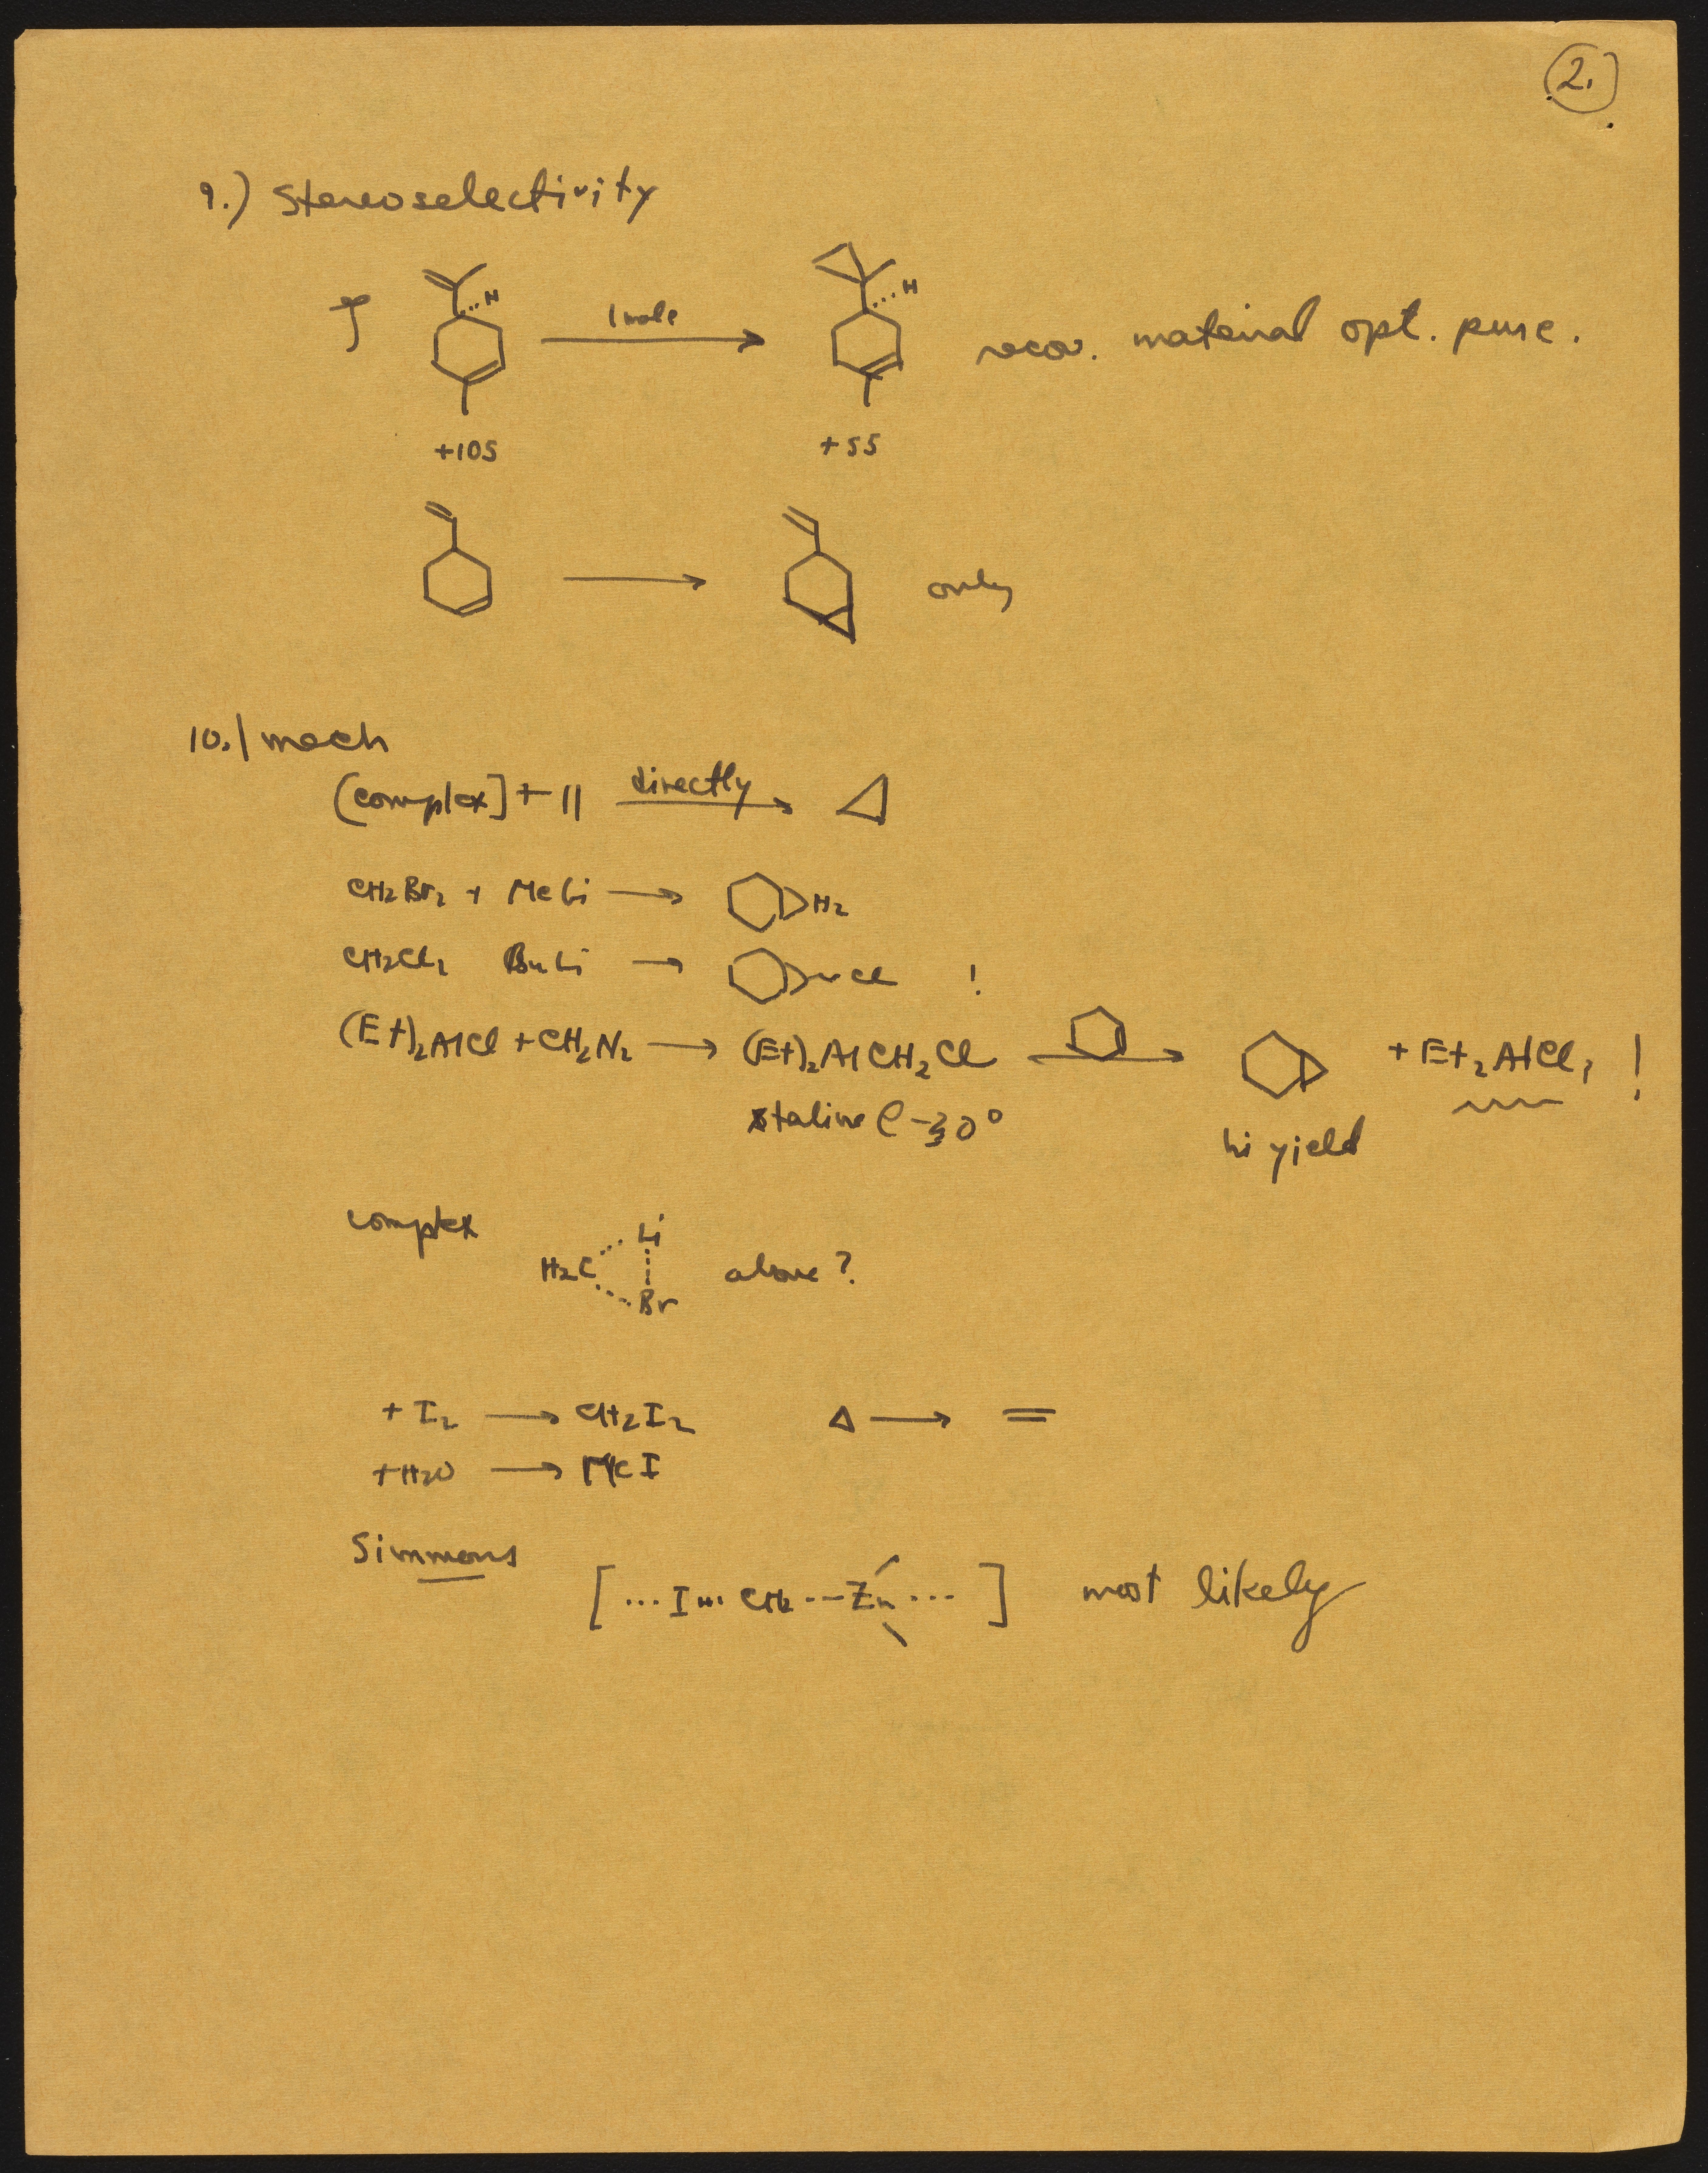 2.
9.) Stereoselectivity
H 1 mole H recov. material opt. pure.
+105 +55
only
10.) mech
[complex] + || directly →
CH2Br2 + MeLi → H2
CH2Cl2 BuLi → Cl !
(Et)2AlCl + CH2N2 → (Et)2AlCH2Cl → + Et2AlCl, !
stable @ -30°
hi yield
complex H2C Li Br alone?
+ I2 → CH2I2 Δ → =
+ H2O → MeI
Simmons
[ ... I ... CH2 --- Zn ... ] most likely